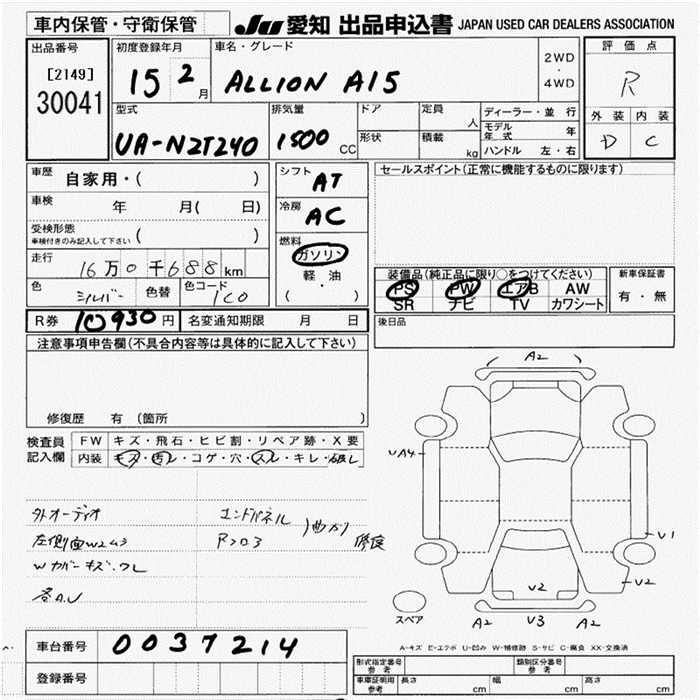 車内保管・守衛保管
JU 愛知 出品申込書 JAPAN USED CAR DEALERS ASSOCIATION
出品番号
[2149]
30041
初度登録年月
15 2 月
車名・グレード
ALLION A15
2WD
・
4WD
評価点
R
外装 内装
D C
型式
UA-NZT240
排気量
1500 CC
ドア
形状
定員
人
積載
kg
ディーラー・並行
モデル年式 年
ハンドル 左・右
車歴 自家用・( )
車検 年 月( 日)
受検形態
車検付きのみ記入して下さい ( )
走行 16万0千688km
色 シルバー 色替 色コード 1C0
シフト AT
冷房 AC
燃料
ガソリン
軽・油
( ・ )
セールスポイント(正常に機能するものに限ります)
装備品(純正品に限り○をつけてください)
PS PW エアB AW
SR ナビ TV カワシート
新車保証書
有・無
R券 10930円 名変通知期限 月 日
後日品
注意事項申告欄(不具合内容等は具体的に記入して下さい)
修復歴 有(箇所 )
検査員記入欄
FW キズ・飛石・ヒビ割・リペア跡・X要
内装 キズ・汚レ・コゲ・穴・スレ・キレ・破レ
外オーディオ
左側面W2U3
Wカバーキズ・ワレ
各A.U
エンドパネル
曲がり
修復
A2
UA4
U1
U2
V2
A2 V3 A2
スペア
A-キズ E-エクボ U-凹み W-補修跡 S-サビ C-腐食 XX-交換済
車台番号 0037214
登録番号
形式指定番号
参考
類別区分番号
参考
車庫証明用
参考
長さ cm
幅 cm
高さ cm